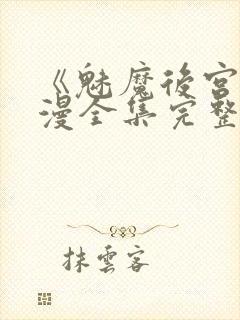 《魅魔後宮
漫全集完整
抹雲客